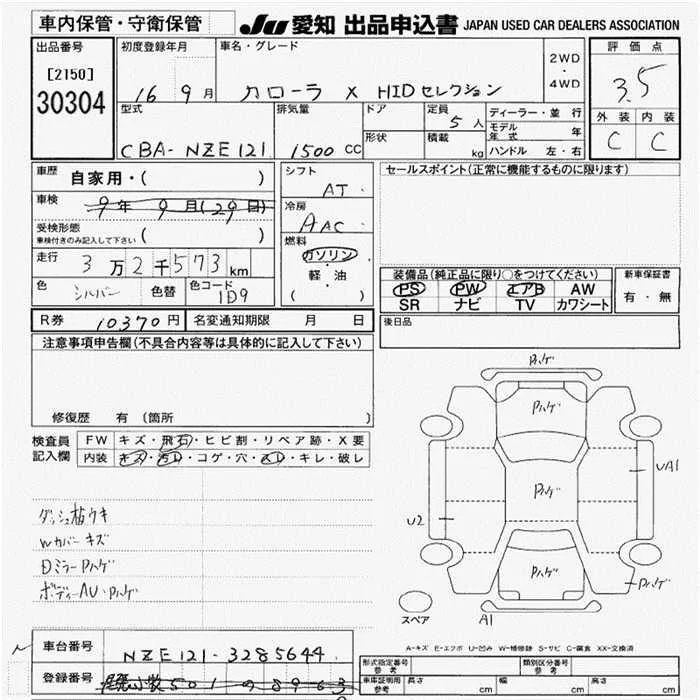 車内保管・守衛保管
JU 愛知 出品申込書 JAPAN USED CAR DEALERS ASSOCIATION
出品番号
[2150]
30304
初度登録年月
16 9月
車名・グレード
カローラ X HIDセレクション
2WD
・
4WD
評価点
3.5
外装 内装
C C
型式
CBA-NZE121
排気量
1500 CC
ドア
形状
定員
5人
積載
kg
ディーラー・並行
モデル年式 年
ハンドル 左・右
車歴
自家用・( )
車検
9年 9月(29日)
受検形態
車検付きのみ記入して下さい ( )
走行
3万2千573km
色
シルバー 色替
色コード
1D9
シフト
AT
冷房
AAC
燃料
ガソリン
・
軽・油
( )
セールスポイント(正常に機能するものに限ります)
装備品(純正品に限り○をつけてください)
PS PW エアB AW
SR ナビ TV カワシート
新車保証書
有・無
R券 10370円 名変通知期限 月 日
後日品
注意事項申告欄(不具合内容等は具体的に記入して下さい)
修復歴 有(箇所 )
検査員記入欄
FW キズ・飛石・ヒビ割・リペア跡・X要
内装 キズ・汚レ・コゲ・穴・スレ・キレ・破レ
ダッシュ板ウキ
Wカバーキズ
DミラーPハゲ
ボディーAU・Pハゲ
Pハゲ
Pハゲ
UA1
Pハゲ
U2
Pハゲ
Pハゲ
スペア
A1
A-キズ E-エクボ U-凹み W-補修跡 S-サビ C-腐食 XX-交換済
車台番号
NZE121-3285644
登録番号
501 8963
形式指定番号
参考
類別区分番号
参考
車庫証明用
参考
長さ cm 幅 cm 高さ cm